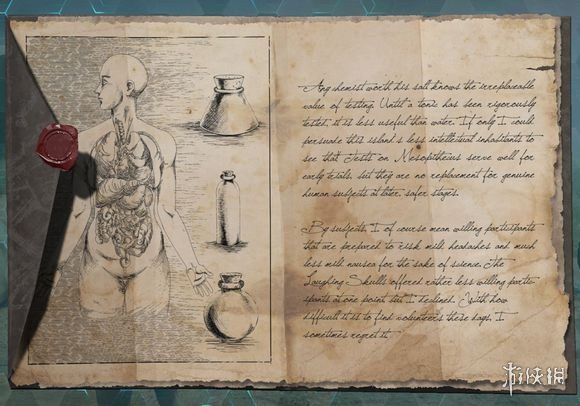 Any chemist worth his salt knows the irreplaceable
value of testing. Until a tonic has seen rigorously
tested, it is less useful than water. If only I could
persuade this island's less intellectual inhabitants to
see that. Tests on Mesopithecus serve well for
early trials, but they are no replacement for genuine
human subjects at later, safer stages.
By subjects, I of course mean willing participants
that are prepared to risk mild headaches and much
less mild nausea for the sake of science. The
Laughing Skulls offered rather less willing partici-
pants at one point but I declined. With how
difficult it is to find volunteers these days, I
sometimes regret it.
游侠网